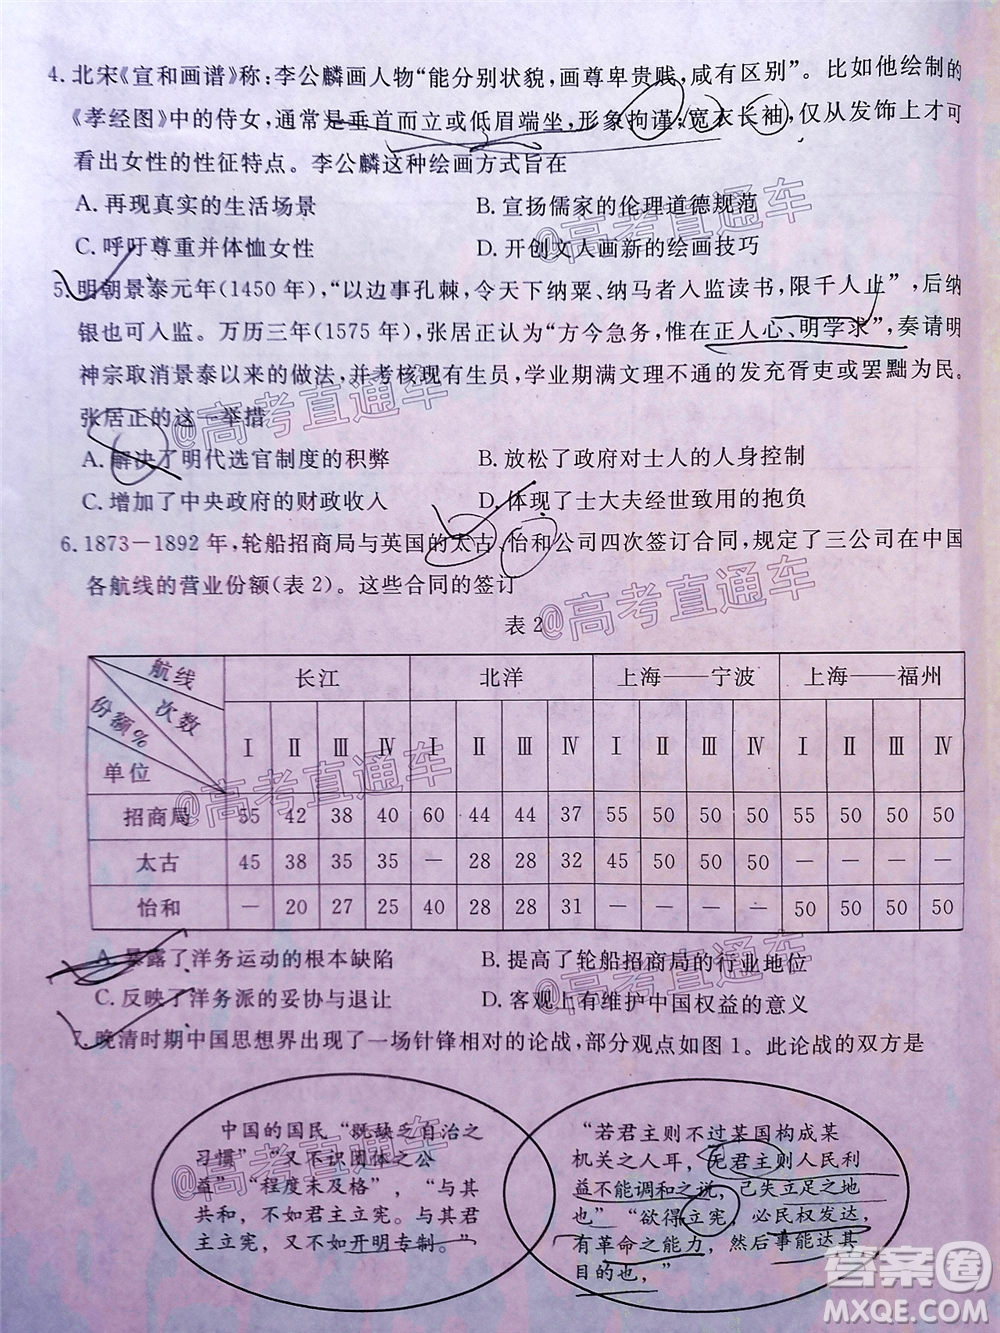 4. 北宋《宣和画谱》称：李公麟画人物“能分别状貌，画尊卑贵贱，咸有区别”。比如他绘制的
《孝经图》中的侍女，通常是垂首而立或低眉端坐，形象拘谨；宽衣长袖，仅从发饰上才可
看出女性的性征特点。李公麟这种绘画方式旨在
A. 再现真实的生活场景
B. 宣扬儒家的伦理道德规范
C. 呼吁尊重并体恤女性
D. 开创文人画新的绘画技巧
5. 明朝景泰元年(1450年)，“以边事孔棘，令天下纳粟、纳马者入监读书，限千人止”，后纳
银也可入监。万历三年(1575年)，张居正认为“方今急务，惟在正人心、明学求”，奏请明
神宗取消景泰以来的做法，并考核现有生员，学业期满文理不通的发充胥吏或罢黜为民。
张居正的这一举措
A. 解决了明代选官制度的积弊
B. 放松了政府对士人的人身控制
C. 增加了中央政府的财政收入
D. 体现了士大夫经世致用的抱负
6. 1873－1892年，轮船招商局与英国的太古、怡和公司四次签订合同，规定了三公司在中国
各航线的营业份额(表2)。这些合同的签订
表2
航线 次数 份额% 单位 长江 北洋 上海——宁波 上海——福州
Ⅰ Ⅱ Ⅲ Ⅳ Ⅰ Ⅱ Ⅲ Ⅳ Ⅰ Ⅱ Ⅲ Ⅳ Ⅰ Ⅱ Ⅲ Ⅳ
招商局 55 42 38 40 60 44 44 37 55 50 50 50 50 50 50 50
太古 45 38 35 35 — 28 28 32 45 50 50 50 — — — —
怡和 — 20 27 25 40 28 28 31 — — — — 50 50 50 50
A. 暴露了洋务运动的根本缺陷
B. 提高了轮船招商局的行业地位
C. 反映了洋务派的妥协与退让
D. 客观上有维护中国权益的意义
7. 晚清时期中国思想界出现了一场针锋相对的论战，部分观点如图1。此论战的双方是
中国的国民“既缺乏自治之
习惯”“又不识团体之公
益”“程度未及格”，“与其
共和，不如君主立宪。与其君
主立宪，又不如开明专制。”
“若君主则不过某国构成某
机关之人耳，无君主则人民利
益不能调和之说，已失立足之地
也”“欲得立宪，必民权发达，
有革命之能力，然后事能达其
目的也，”
@高考直通车
@高考直通车
@高考直通车
@高考直通车
@高考直通车
@高考直通车
@高考直通车
答案圈
MXQE.COM